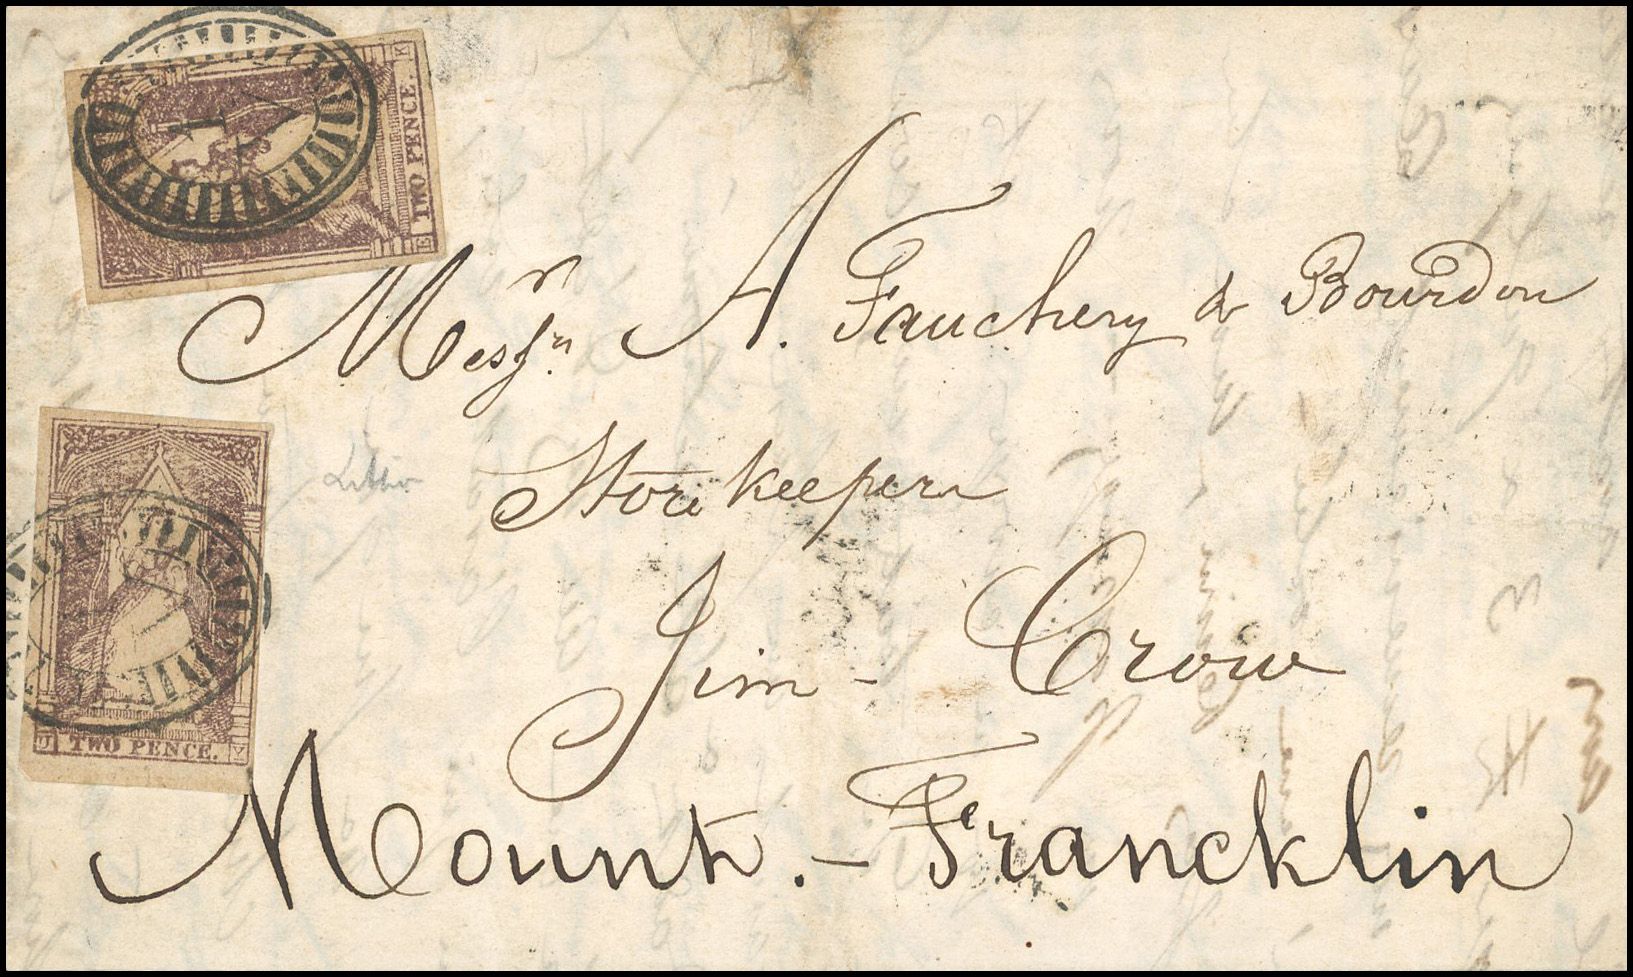 TWO PENCE.
E
K
Messrs A. Fauchery & Bourdon
Storekeepers
Jim - Crow
Mount. - Francklin
TWO PENCE.